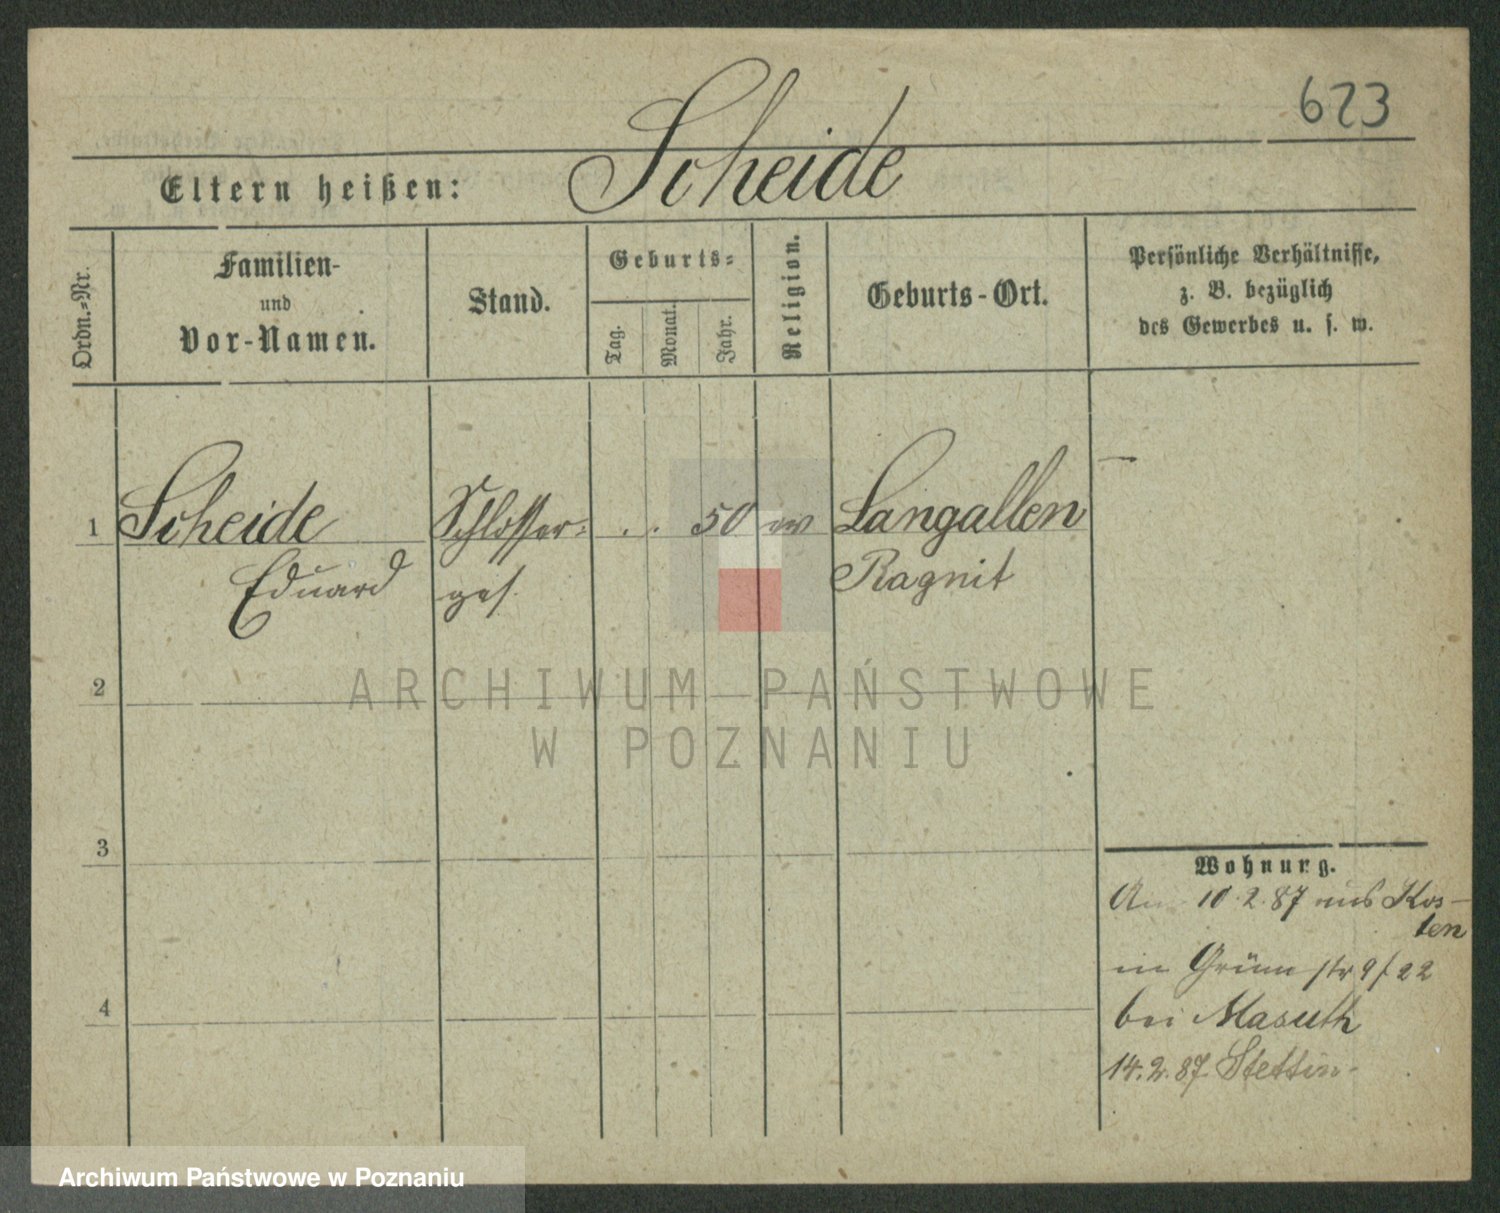 623
Scheide
Eltern heißen:
Ordn.-Nr.
Familien-
und
Vor-Namen.
Stand.
Geburts-
Tag.
Monat.
Jahr.
Religion.
Geburts-Ort.
Persönliche Verhältnisse,
z. B. bezüglich
des Gewerbes u. s. w.
1 Scheide Schlosser- . . 50 ev Langallen —
Eduard ges. Ragnit
2
3
4
Wohnung.
10.2.87 aus Kos-
ten
in Grün str 9/22
bei Masuth
14.2.87 Stettin-
ARCHIWUM PAŃSTWOWE
W POZNANIU
Archiwum Państwowe w Poznaniu